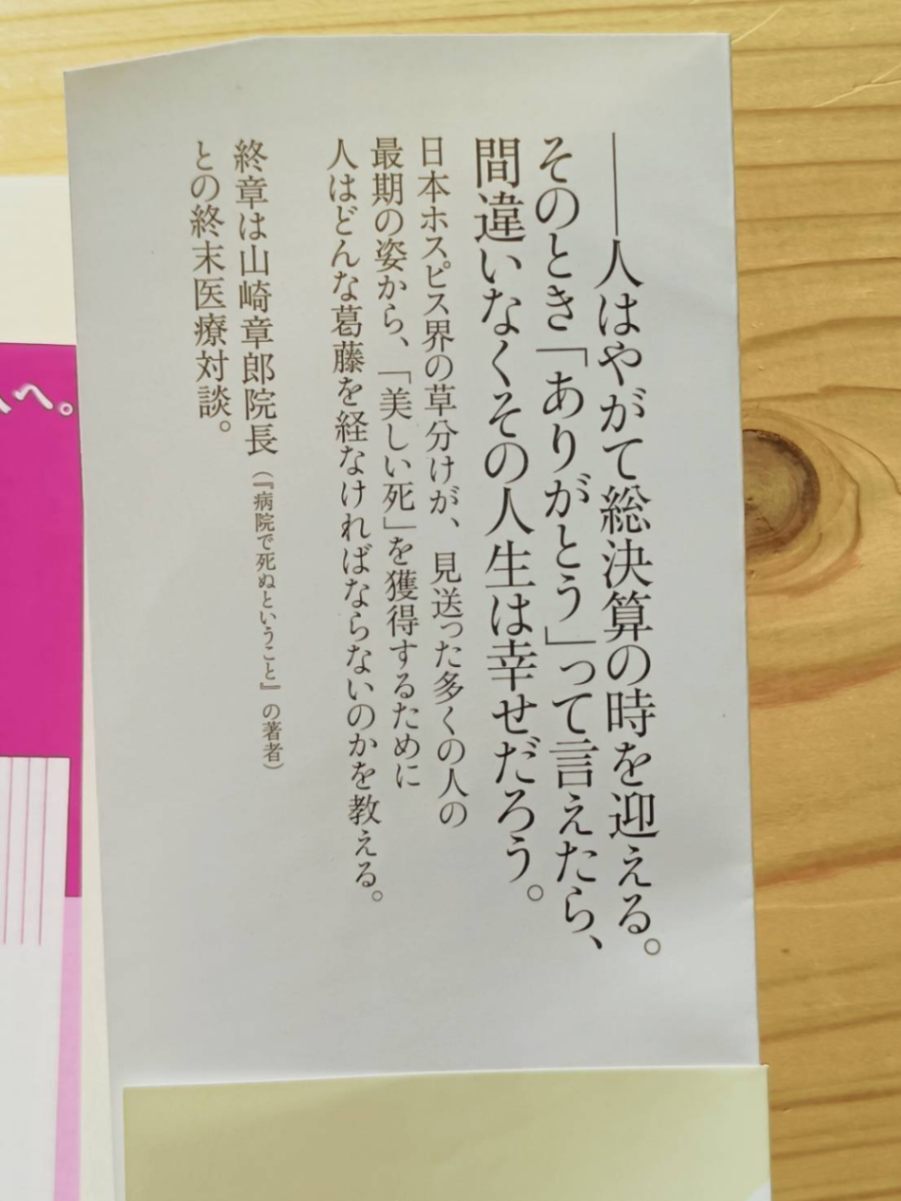 ――人はやがて総決算の時を迎える。
そのとき「ありがとう」って言えたら、
間違いなくその人生は幸せだろう。
日本ホスピス界の草分けが、見送った多くの人の
最期の姿から、「美しい死」を獲得するために
人はどんな葛藤を経なければならないのかを教える。
終章は山崎章郎院長（『病院で死ぬということ』の著者）
との終末医療対談。
へ。